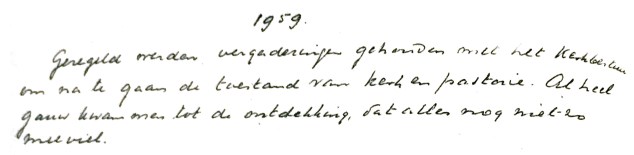 1959.
Geregeld werden vergaderingen gehouden met het Kerkbestuur
om na te gaan de toestand van kerk en pastorie. Al heel
gauw kwam men tot de ontdekking, dat alles nog niet zo
meeviel.